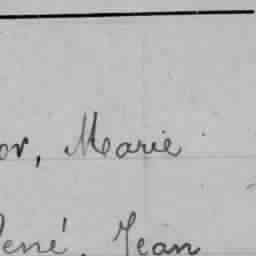 or, Marie
René, Jean